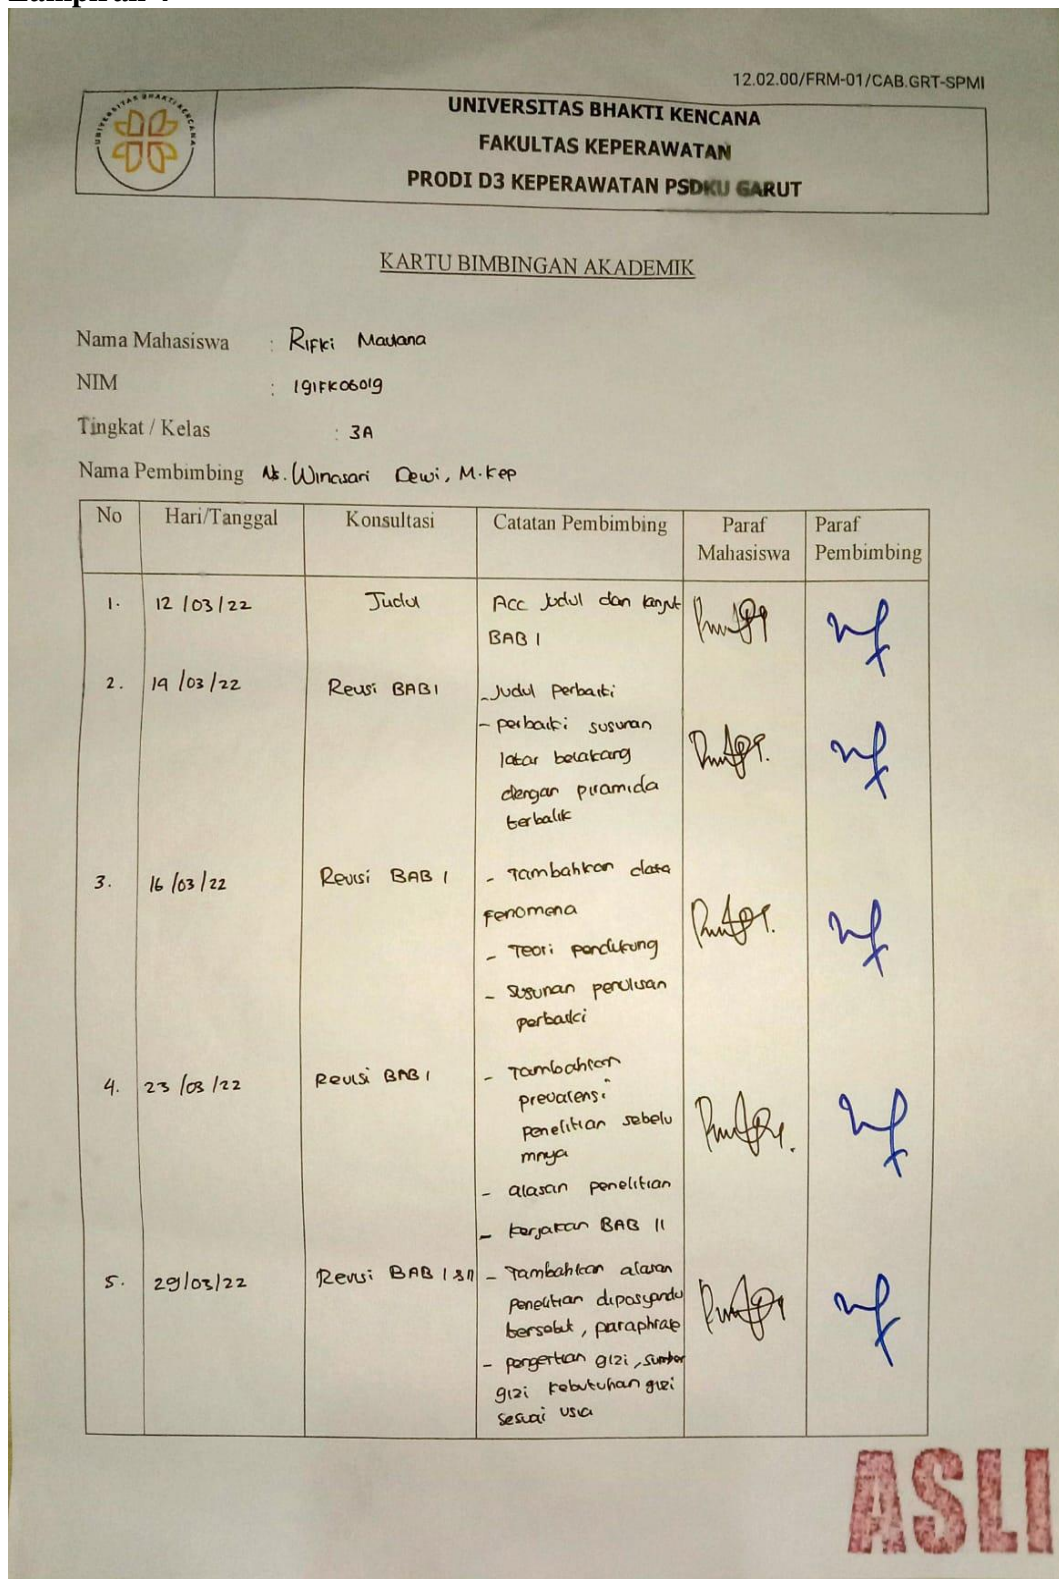 12.02.00/FRM-01/CAB.GRT-SPMI
UNIVERSITAS BHAKTI KENCANA
UNIVERSITAS BHAKTI KENCANA
FAKULTAS KEPERAWATAN
PRODI D3 KEPERAWATAN PSDKU GARUT
KARTU BIMBINGAN AKADEMIK
Nama Mahasiswa : Rifki Maulana
NIM : 191FK06019
Tingkat / Kelas : 3A
Nama Pembimbing Ns. Winasari Dewi, M.Kep
No Hari/Tanggal Konsultasi Catatan Pembimbing Paraf Mahasiswa Paraf Pembimbing
1. 12/03/22 Judul Acc Judul dan lanjut
BAB I
2. 19/03/22 Revisi BAB I - Judul perbaiki
- perbaiki susunan
latar belakang
dengan piramida
terbalik
3. 16/03/22 Revisi BAB I - Tambahkan data
Fenomena
- Teori pendukung
- Susunan penulisan
perbaiki
4. 23/03/22 Revisi BAB I - Tambahkan
prevalensi
penelitian sebelu
mnya
- alasan penelitian
- kerjakan BAB II
5. 29/03/22 Revisi BAB I & II - Tambahkan alasan
penelitian diposyandu
tersebut, paraphrase
- pengertian gizi, sumber
gizi kebutuhan gizi
sesuai usia
ASLI